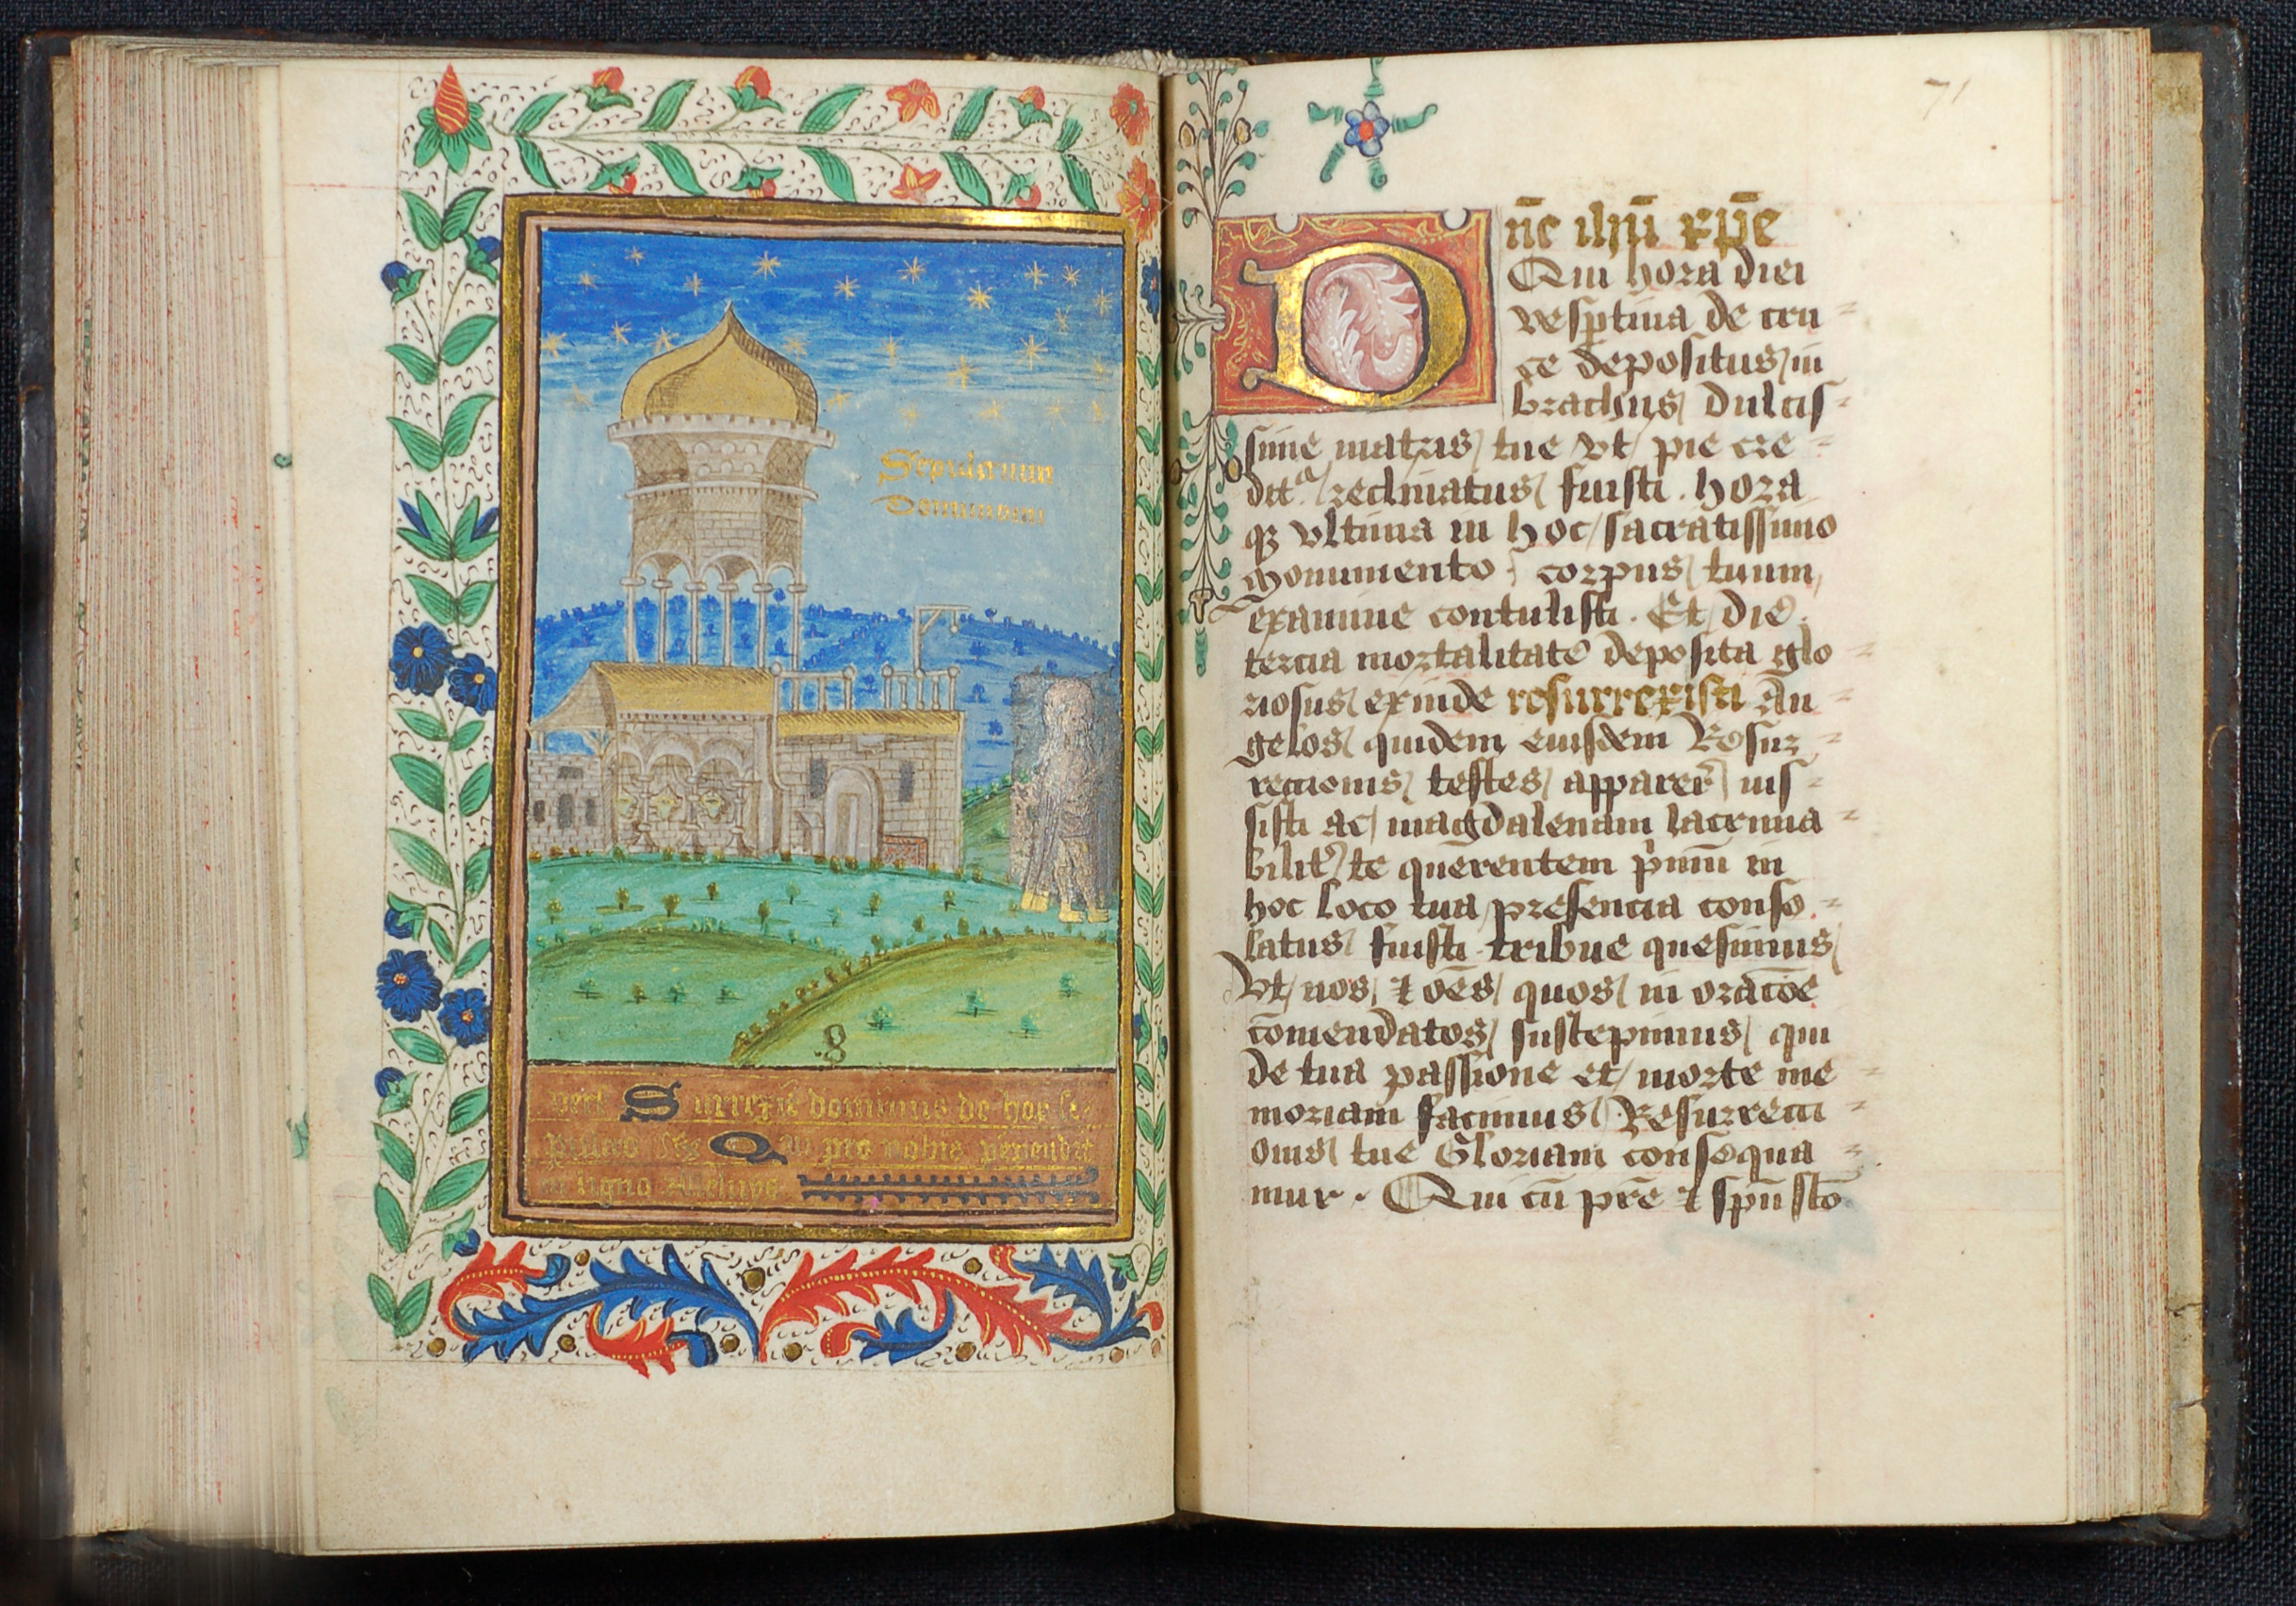 Sepulcrum
Dominicum
8
vers Surrexit dominus de hoc se
pulcro Rs Qui pro nobis pependit
in ligno alleluya
71
Dn̄e ih̄u xp̄e
Qui hora diei
vesptina de cru
ce depositus in
brachijs dulcis
sime matris tue vt pie cre
ditᵃ reclinatus fuisti. hora
qʒ vltima in hoc sacratissimo
monumento corpus tuum
exanime contulisti. Et die
tercia mortalitatē deposita glo
riosus exinde resurrexisti An
gelos quidem eiusdem Resur
rectionis testes apparer̄ ius
sisti ac magdalenam lacrima
bilit̓ te querentem p̓mū in
hoc loco tua presencia conso
latus fuisti tribue quesumus
Vt nos ⁊ oēs quos in oracōe
cōmendatos suscepimus qui
de tua passione et morte me
moriam facimus Resurrecti
onis tue Gloriam consequa
mur. Qui cū pr̄e ⁊ spū scō